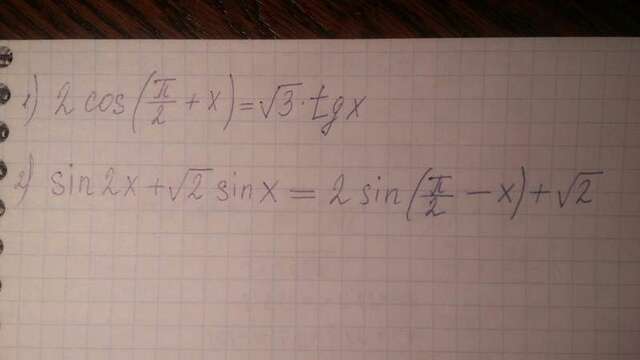 1) 2 cos(π/2 + x) = √3 · tg x
2) sin 2x + √2 sin x = 2 sin(π/2 − x) + √2